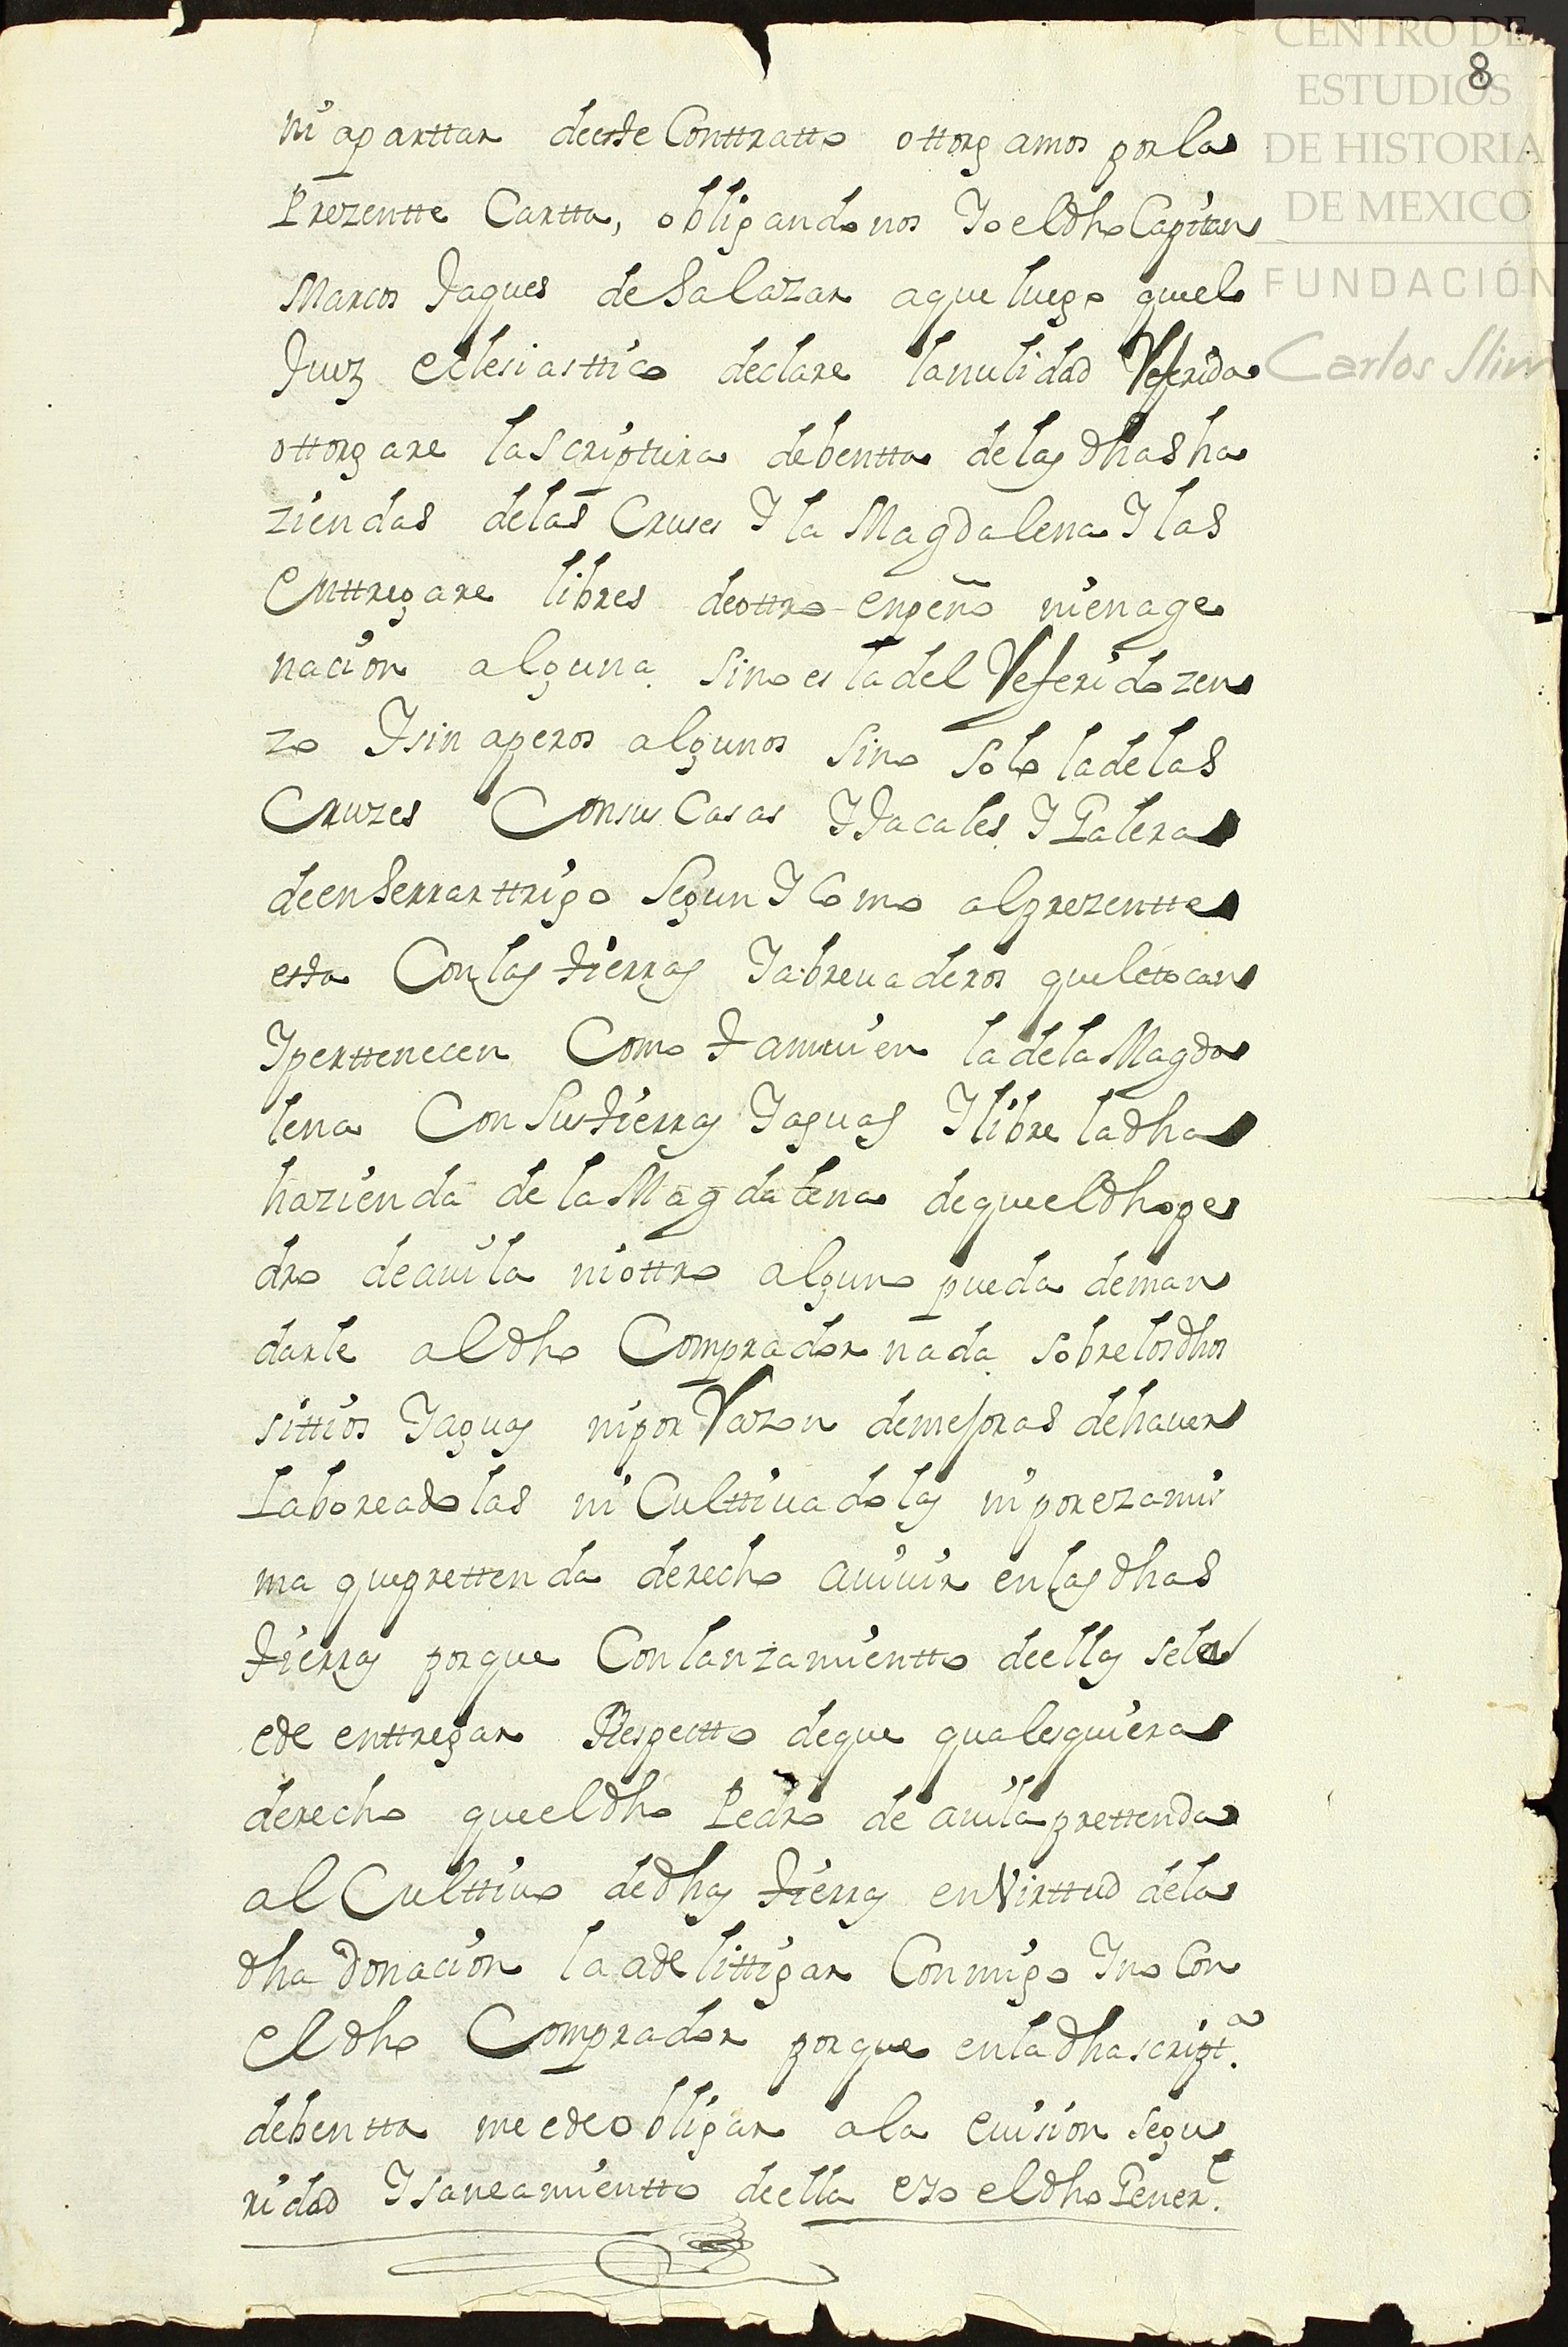 CENTRO DE
ESTUDIOS
DE HISTORIA
DE MEXICO
FUNDACIÓN
Carlos Slim
8
ni aparttar deeste Conttratto ottorgamos por la
Prezentte Cartta, obligandonos Yo el dho Capitan
Marcos Jaques de Salazar a que luego que el
Juez eclesiasttico declare la nulidad Referida
ottorgare la scriptura de bentta de las dhas ha
ziendas de las Cruses Y la Magdalena Y las
enttregare libres de ottro enpeño ni enage
nacion alguna sino es la del Referido zen
zo Y sin aperos algunos sino solo la de las
Cruzes Con sus Casas Y Jacales Y Palera
de enserrar ttrigo segun Y Como al prezentte
esta Con las tierras Y abreuaderos que le tocan
Y perttenecen Como tanuien la de la Magda
lena Con sus tierras Y aguas Y libre la dha
hazienda de la Magdalena de que el dho pe
dro de auila ni ottro alguno pueda deman
darle al dho Comprador nada sobre los dhos
sittios Y aguas ni por Razon de mejoras de hauer
Laboreadolas ni Culttiuadolas ni por ezamis
ma que prettenda derecho a uiuir en las dhas
tierras porque Con lanzamientto de ellas se la
e de enttregar Respectto de que qualesquiera
derecho que el dho Pedro de auila prettenda
al Culttiuo de dhas tierras en Virttud de la
dha Donacion la a de littigar Conmigo Y no Con
el dho Comprador porque en la dha script.ª
de bentta me e de obligar a la euision segu
ridad Y saneamientto de ella e Yo el dho Pener.